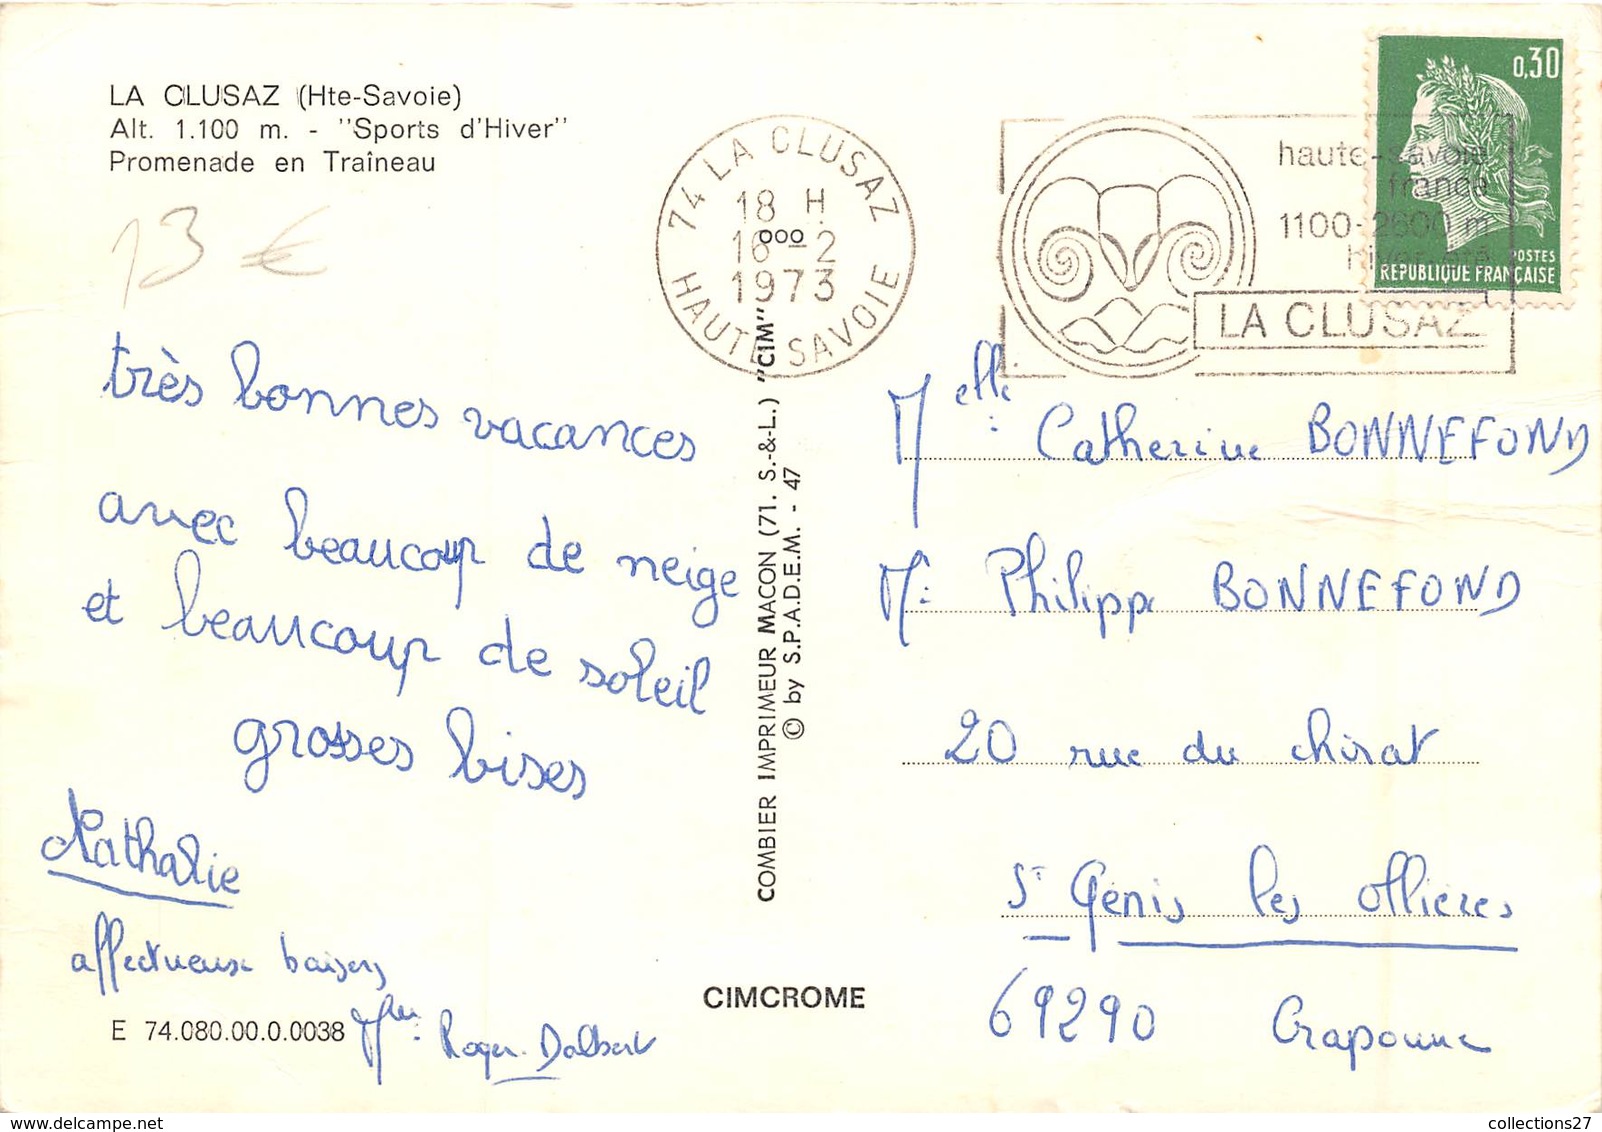 LA CLUSAZ (Hte-Savoie)
Alt. 1.100 m. - "Sports d'Hiver"
Promenade en Traîneau
13 €
74 LA CLUSAZ
18 H
16-2
1973
HAUTE SAVOIE
haute-savoie
france
1100-2600 m
hiver-été
LA CLUSAZ
0,30
POSTES
REPUBLIQUE FRANÇAISE
très bonnes vacances
avec beaucoup de neige
et beaucoup de soleil
grosses bises
Nathalie
affectueux baisers
Roger Dalbert
E 74.080.00.0.0038
COMBIER IMPRIMEUR MACON (71. S.-&-L.) "CIM"
© by S.P.A.D.E.M. - 47
CIMCROME
Melle Catherine BONNEFOND
Mr Philippe BONNEFOND
20 rue du chirat
St Genis les ollières
69290 Craponne
collections27